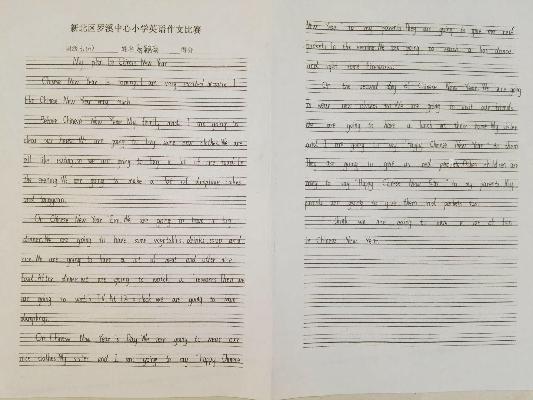 新北区罗溪中心小学英语作文比赛
班级 姓名 得分
My plan for Chinese New Year
Chinese New Year is coming. I am very excited because I
like Chinese New Year very much.
Before Chinese New Year, My family and I are going to
clean our house. We are going to buy some new clothes. We are
going to buy a lot of
the evening. We are going to make a lot of dumplings, cakes
and tangyuan.
On Chinese New Year Eve. We are going to have a big
dinner. We are going to have some vegetables, drinks, soup and
rice. We are going to have a lot of meat and other nice
food. After dinner, we are going to watch a fireworks. Then we
are going to watch TV. At 12 o'clock, we are going to have
dumplings.
On Chinese New Year's Day. We are going to wear our
nice clothes. My sister and I are going to say "Happy Chinese
New Year" to my parents. They are going to give me red
packets. In the evening, We are going to watch a lion dance
and light some firecrackers.
On the second day of Chinese New Year. We are going
to visit our We are going to visit our friends.
We are going to have a lunch at their home. My sister
and I are going to say "Happy Chinese New Year" to them
They are going to give us red packets. children are
going to say "Happy Chinese New Year" to my parents. My
parents are going to give them red packets too.
I think we are going to have a lot of fun
in Chinese New Year.